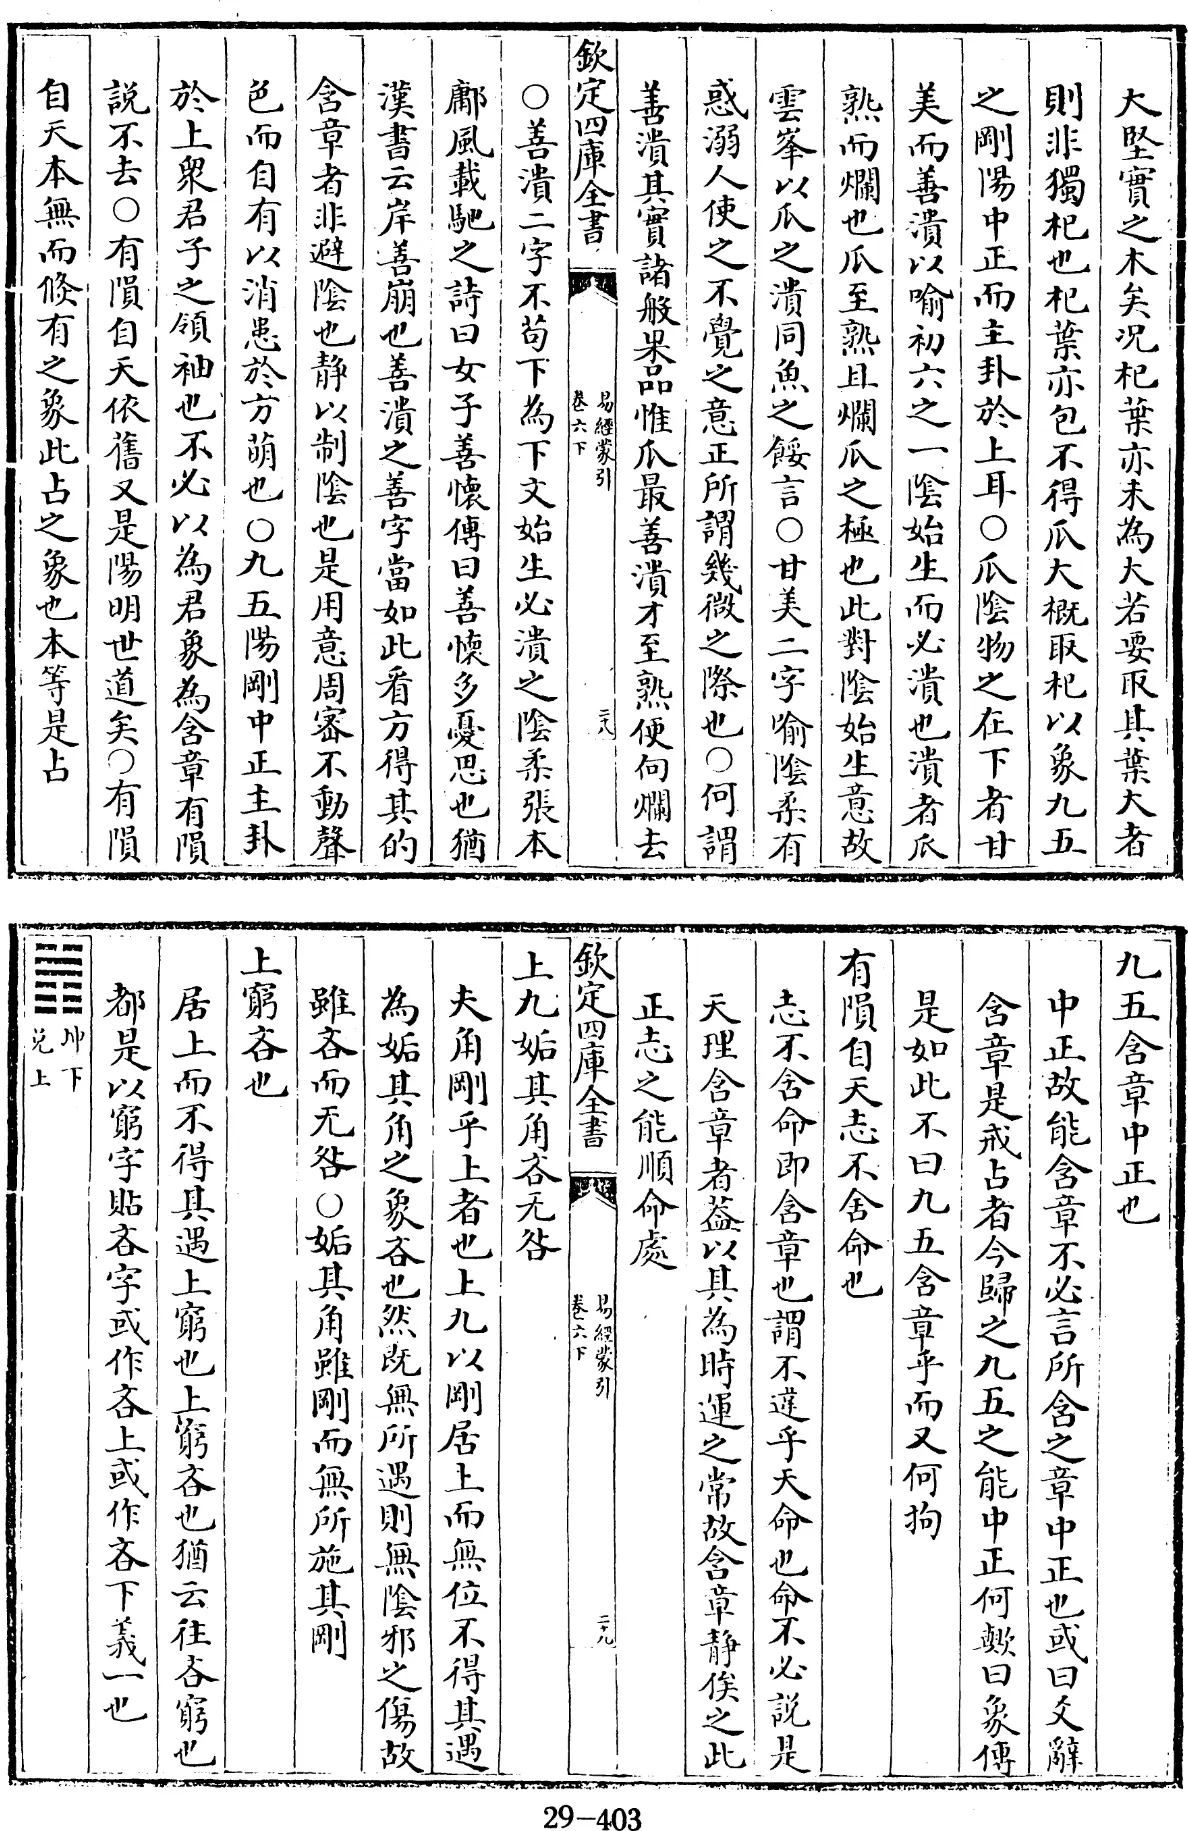 大堅實之木矣况杞葉亦未為大若要取其葉大者
則非獨杞也杞葉亦包不得瓜大概取杞以象九五
之剛陽中正而主卦於上耳○瓜陰物之在下者甘
美而善潰以喻初六之一陰始生而必潰也潰者瓜
熟而爛也瓜至熟且爛瓜之極也此對陰始生意故
雲峯以瓜之潰同魚之餒言○甘美二字喻陰柔有
惑溺人使之不覺之意正所謂幾微之際也○何謂
善潰其實諸般果品惟瓜最善潰才至熟便向爛去
欽定四庫全書
易經蒙引
卷六下
二八
○善潰二字不苟下為下文始生必潰之陰柔張本
鄘風載馳之詩曰女子善懐傳曰善懐多憂思也猶
漢書云岸善崩也善潰之善字當如此看方得其的
含章者非避陰也静以制陰也是用意周密不動聲
色而自有以消患於方萌也○九五陽剛中正主卦
於上衆君子之領袖也不必以為君象為含章有隕
説不去○有隕自天依舊又是陽明世道矣○有隕
自天本無而倐有之象此占之象也本等是占
九五含章中正也
中正故能含章不必言所含之章中正也或曰爻辭
含章是戒占者今歸之九五之能中正何歟曰象傳
是如此不曰九五含章乎而又何拘
有隕自天志不舍命也
志不舍命即含章也謂不違乎天命也命不必説是
天理含章者葢以其為時運之常故含章静俟之此
正志之能順命處
欽定四庫全書
易經蒙引
卷六下
二九
上九姤其角吝无咎
夫角剛乎上者也上九以剛居上而無位不得其遇
為姤其角之象吝也然既無所遇則無陰邪之傷故
雖吝而无咎○姤其角雖剛而無所施其剛
上窮吝也
居上而不得其遇上窮也上窮吝也猶云往吝窮也
都是以窮字貼吝字或作吝上或作吝下義一也
坤下
兑上
29-403